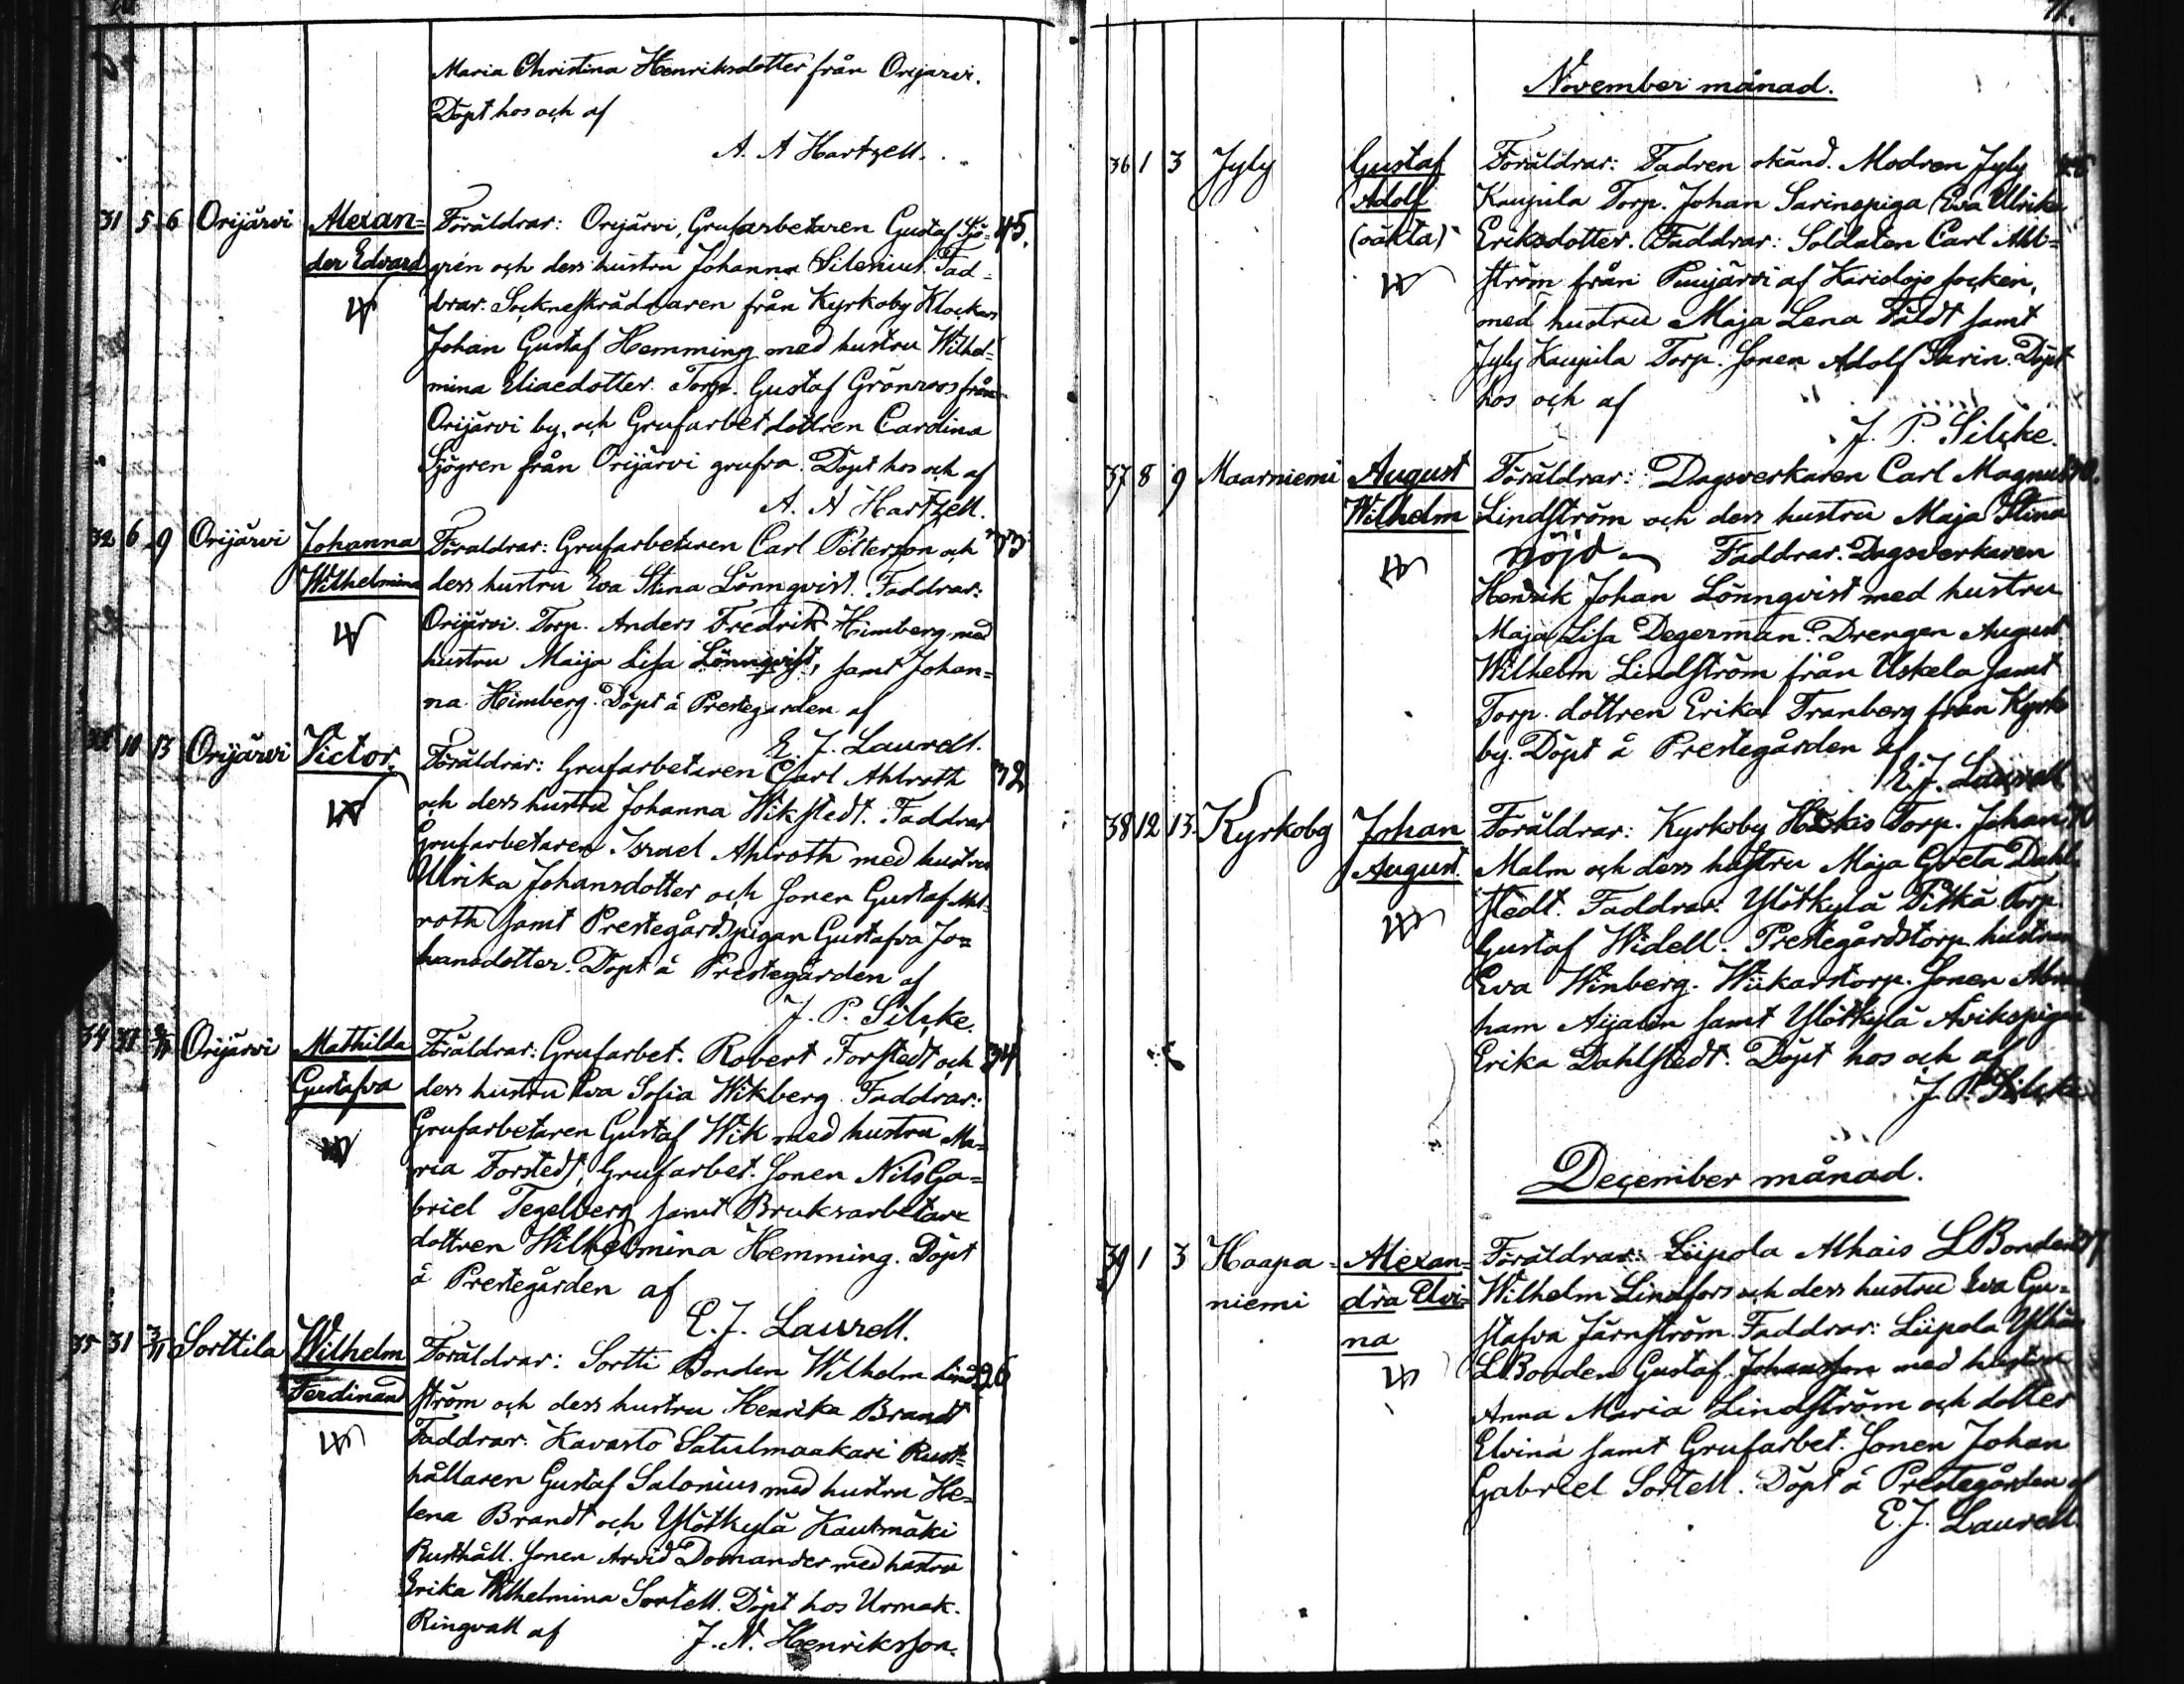 Maria Christina Henriksdotter från Orijärvi.
Döpt hos och af
A. A Hartzell.
31 5 6 Orijärvi Alexan= Föräldrar: Orijärvi, Grufarbetaren Gustaf Sjö= 45.
der Edvard grén och dess hustru Johanna Silenius. Fad=
drar. Sockneskräddaren från Kyrkoby Klockars
Johan Gustaf Hemming med hustru Wilhel=
mina Eliaedotter. Torp. Gustaf Grönroos från
Orijärvi by, och Grufarbet dottren Carolina
Sjögren från Orijärvi grufva. Döpt hos och af
A. A Hartzell.
32 6 9 Orijärvi Johanna Föraldrar: Grufarbetaren Carl Petterson och 33
Wilhelmina dess hustru Eva Stina Lönnqvist. Faddrar:
Orijärvi. Torp. Anders Fredrik Himberg med
hustru Maija Lisa Lönnqvist, samt Johan=
na Himberg. Döpt å Prestegården af
E. J. Laurell.
10 13 Orijärvi Victor. Föräldrar: Grufarbetaren Carl Ahlroth 32
och dess hustru Johanna Wikstedt. Faddrar
Grufarbetaren Israel Ahlroth med hustru
Ulrika Johansdotter och sonen Gustaf Ahl=
roth samt Prestegårdspigan Gustafva Jo=
hansdotter. Döpt å Prestegården af
J. P. Silcke.
34 31 Orijärvi Mathilda Föräldrar: Grufarbet. Robert Forstedt och 34
Gustafva dess hustru Eva Sofia Wikberg. Faddrar:
Grufarbetaren Gustaf Wik med hustru Ma=
ria Forstedt, Grufarbet. sonen Nils Ga=
briel Tegelberg samt Bruksarbetare
dottren Wilhelmina Hemming. Döpt
å Prestegården af
E. J. Laurell.
35 31 3/11 Sorttila Wilhelm Föräldrar: Sortti Bonden Wilhelm Lind= 26
Ferdinand ström och dess hustru Henrika Brandt
Faddrar. Kavasto Satulmaakari Rust=
hållaren Gustaf Salonius med hustru He=
lena Brandt och Ylötkylä Kautmäki
Rusthåll. sonen Arvid Domander med hustru
Erika Wilhelmina Sortell. Döpt hos Urmak.
Ringvall af J. N. Henriksson.
11.
November månad.
36 1 3 Jyly Gustaf Föräldrar: Fadren okänd. Modren Jyly
Adolf Kaupila Torp. Johan Sarinspiga Eva Ulrika
(oäkta) Eriksdotter. Faddrar: Soldaten Carl Ahl=
ström från Puujärvi af Karislojo socken,
med hustru Maja Lena Fäldt samt
Jyly Kaupila Torp. sonen Adolf Sarin. Döpt
hos och af
J. P. Silcke.
37 8 9 Maarniemi August Föräldrar: Dagsverkaren Carl Magnus
Wilhelm Lindström och dess hustru Maja Stina
Nöjd Faddrar. Dagsverkaren
Henrik Johan Lönnqvist med hustru
Maja Lisa Degerman. Drengen August
Wilhelm Lindström från Uskela samt
Torp. dottren Erika Tranberg från Kyrko
by. Döpt å Prestegården af
E. J. Laurell
38 12 13. Kyrkoby Johan Föräldrar: Kyrkoby Torp. Johan
August. Malm och dess hustru Maja Greta Dahl
stedt. Faddrar: Ylötkylä Pitkä Torp.
Gustaf Widell. Prestegårdstorp. hustrun
Eva Winberg. Wiikarstorp. sonen Abra
ham Aijalin samt Ylötkylä Avikspigan
Erika Dahlstedt. Döpt hos och af
J. P. Silcke
December månad.
39 1 3 Haapa= Alexan= Föräldrar: Liipola Alhais LBonden
niemi dra Elvi= Wilhelm Lindfors och dess hustru Eva Gu=
na stafva Järnström. Faddrar: Liipola
LBonden Gustaf Johansson med hustru
Anna Maria Lindström och dotter
Elvina samt Grufarbet. sonen Johan
Gabriel Sortell. Döpt å Prestegården af
E. J. Laurell.